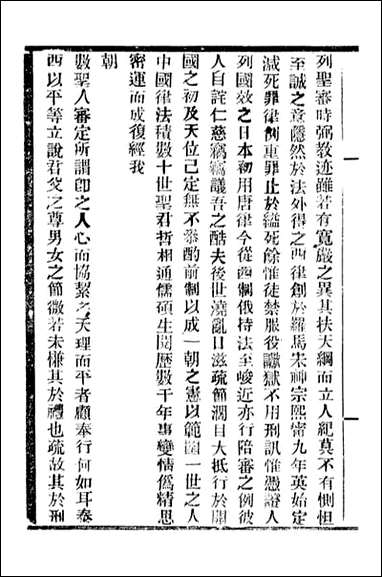 列聖審時弼教迹雖若有寬嚴之異其扶天綱而立人紀莫不有惻怛
至誠之意隱然於法外得之西律創於羅馬宋神宗熙甯九年英始定
減死罪律例重罪止於縊死餘惟徒禁服役讞獄不用刑訊惟憑證人
列國效之日本初用唐律今從西制俄持法至峻近亦行陪審之例彼
人自詫仁慈竊竊議吾之酷夫後世澆亂日滋疏節濶目大抵行於開
國之初及天位己定無不參酌前制以成一朝之憲以範圍一世之人
中國律法積數十世聖君哲相通儒碩生閱歷數千年事變情僞精思
密運而成復經我
朝
數聖人審定所謂卽之人心而協絜之天理而平者顧奉行何如耳泰
西以平等立說君父之尊男女之節微若未慊其於禮也疏故其於刑